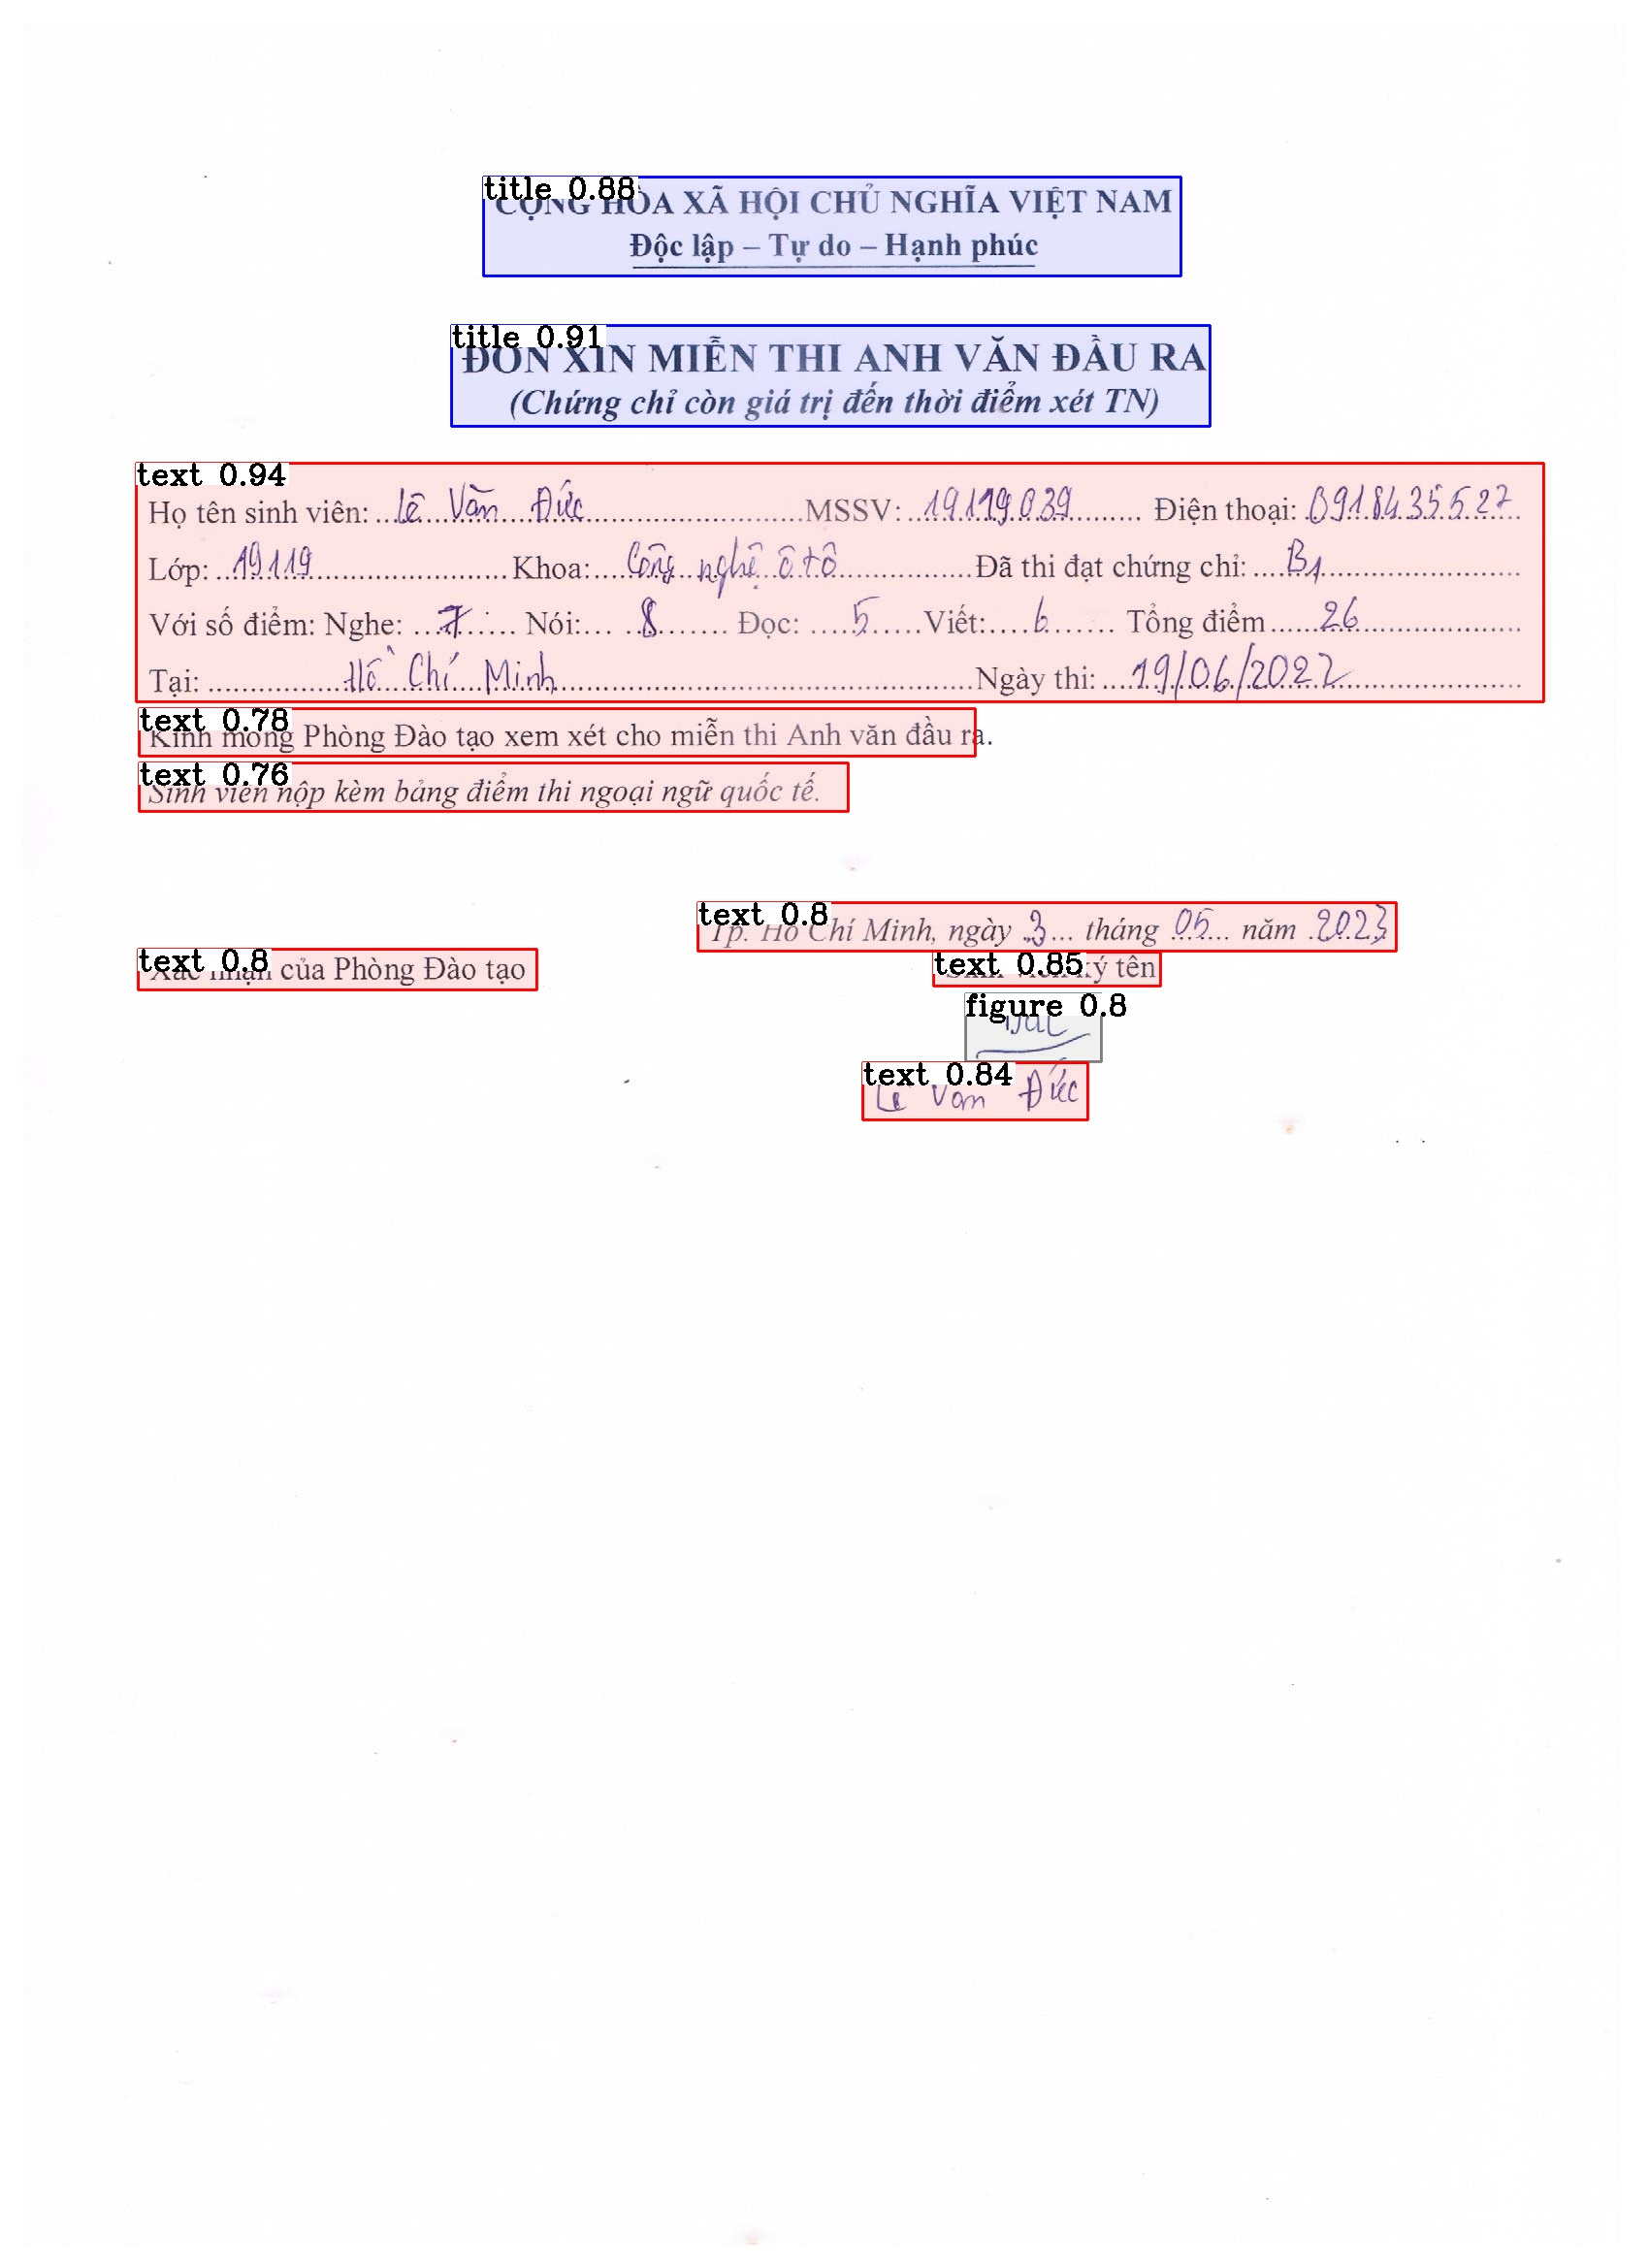 title 0.88
CỘNG HÒA XÃ HỘI CHỦ NGHĨA VIỆT NAM
Độc lập – Tự do – Hạnh phúc
title 0.91
ĐƠN XIN MIỄN THI ANH VĂN ĐẦU RA
(Chứng chỉ còn giá trị đến thời điểm xét TN)
text 0.94
Họ tên sinh viên: Lê Văn Đức MSSV: 19119039 Điện thoại: 0918435527
Lớp: 19119 Khoa: Công nghệ ô tô Đã thi đạt chứng chỉ: B1
Với số điểm: Nghe: 7 Nói: 8 Đọc: 5 Viết: 6 Tổng điểm 26
Tại: Hồ Chí Minh Ngày thi: 19/06/2022
text 0.78
Kính mong Phòng Đào tạo xem xét cho miễn thi Anh văn đầu ra.
text 0.76
Sinh viên nộp kèm bảng điểm thi ngoại ngữ quốc tế.
text 0.8
Tp. Hồ Chí Minh, ngày 3 tháng 05 năm 2023
text 0.8
Xác nhận của Phòng Đào tạo
text 0.85
Sinh viên ký tên
figure 0.8
text 0.84
Lê Văn Đức